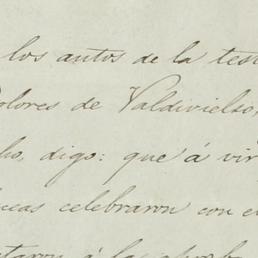 los autos de la tes
Dolores de Valdivielso,
ho, digo: que á vir
neas celebraron con e
taron á las